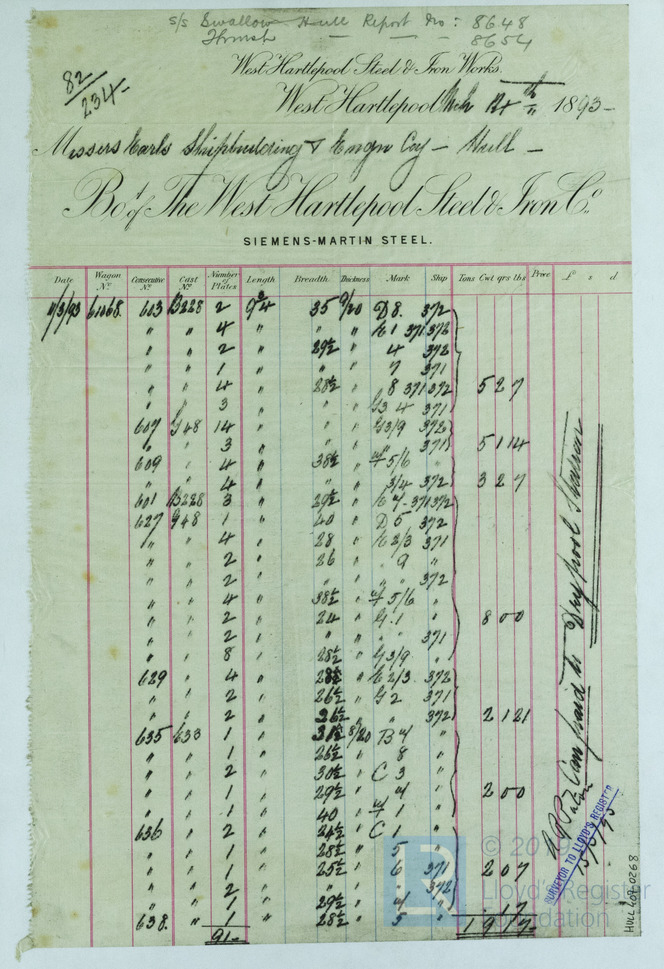 s/s Swallow Hull Report No: 8648
Thrush — — — 8654
82/234
West Hartlepool Steel & Iron Works.
West Hartlepool Mch 14th 1893
Messers Earls Shipbuilding & Engn Coy — Hull —
Bot. of The West Hartlepool Steel & Iron Co.
SIEMENS-MARTIN STEEL.
Date Wagon No. Consecutive No. Cast No. Number of Plates Length Breadth Thickness Mark Ship Tons Cwt qrs lbs Price £ s d
11/3/93 61068. 603 B228 2 35 9/20 D 8. 372
" " 4 " " " E 1 371 372
" " 2 " 29½ " 4 372
" " 1 " " " 7 371
" " 4 " 28½ " 8 371 372 5 2 7
" " 3 " " " G3 4 371
607 G48 14 " " " G3/9 372
" " 3 " " " 371 5 1 14
609 " 4 " 38½ " 5/6 "
" " 4 " " " 3/4 372 3 2 7
601 B228 3 " 29½ " 371 372
627 G48 1 " 40 " D 5 372
" " 4 " 28 " E 2/3 371
" " 2 " 26 " " 9 "
" " 2 " " " " " 372
" " 4 " 38½ " 5/6 "
" " 2 " 24 " G. 1 " 8 0 0
" " 2 " " " " 371
" " 8 " 28½ " G3/9 "
629 " 4 " 28½ " E 2/3 372
" " 2 " 26½ " G 2 371
" " 2 " 36½ " " 372 2 1 21
635 633 1 " 31½ 8/20 B 4 "
" " 1 " 26½ " " 8 "
" " 2 " 30½ " C 3 "
" " 1 " 29½ " " 4 " 2 0 0
" " 1 " 40 " 1 "
636 " 2 " 24½ " C 1 "
" " 1 " 28½ " 5 "
" " 1 " 25½ " 6 371 2 0 7
" " 2 " " " " 372
" " 1 " 29½ " 4 "
638. " 1 " 28½ " 5 "
91 19 17
paid to Drypool Station
SURVEYOR TO LLOYD'S REGISTER
15/3/93
HULL 409-0268
© 2019
Lloyd's Register
Foundation